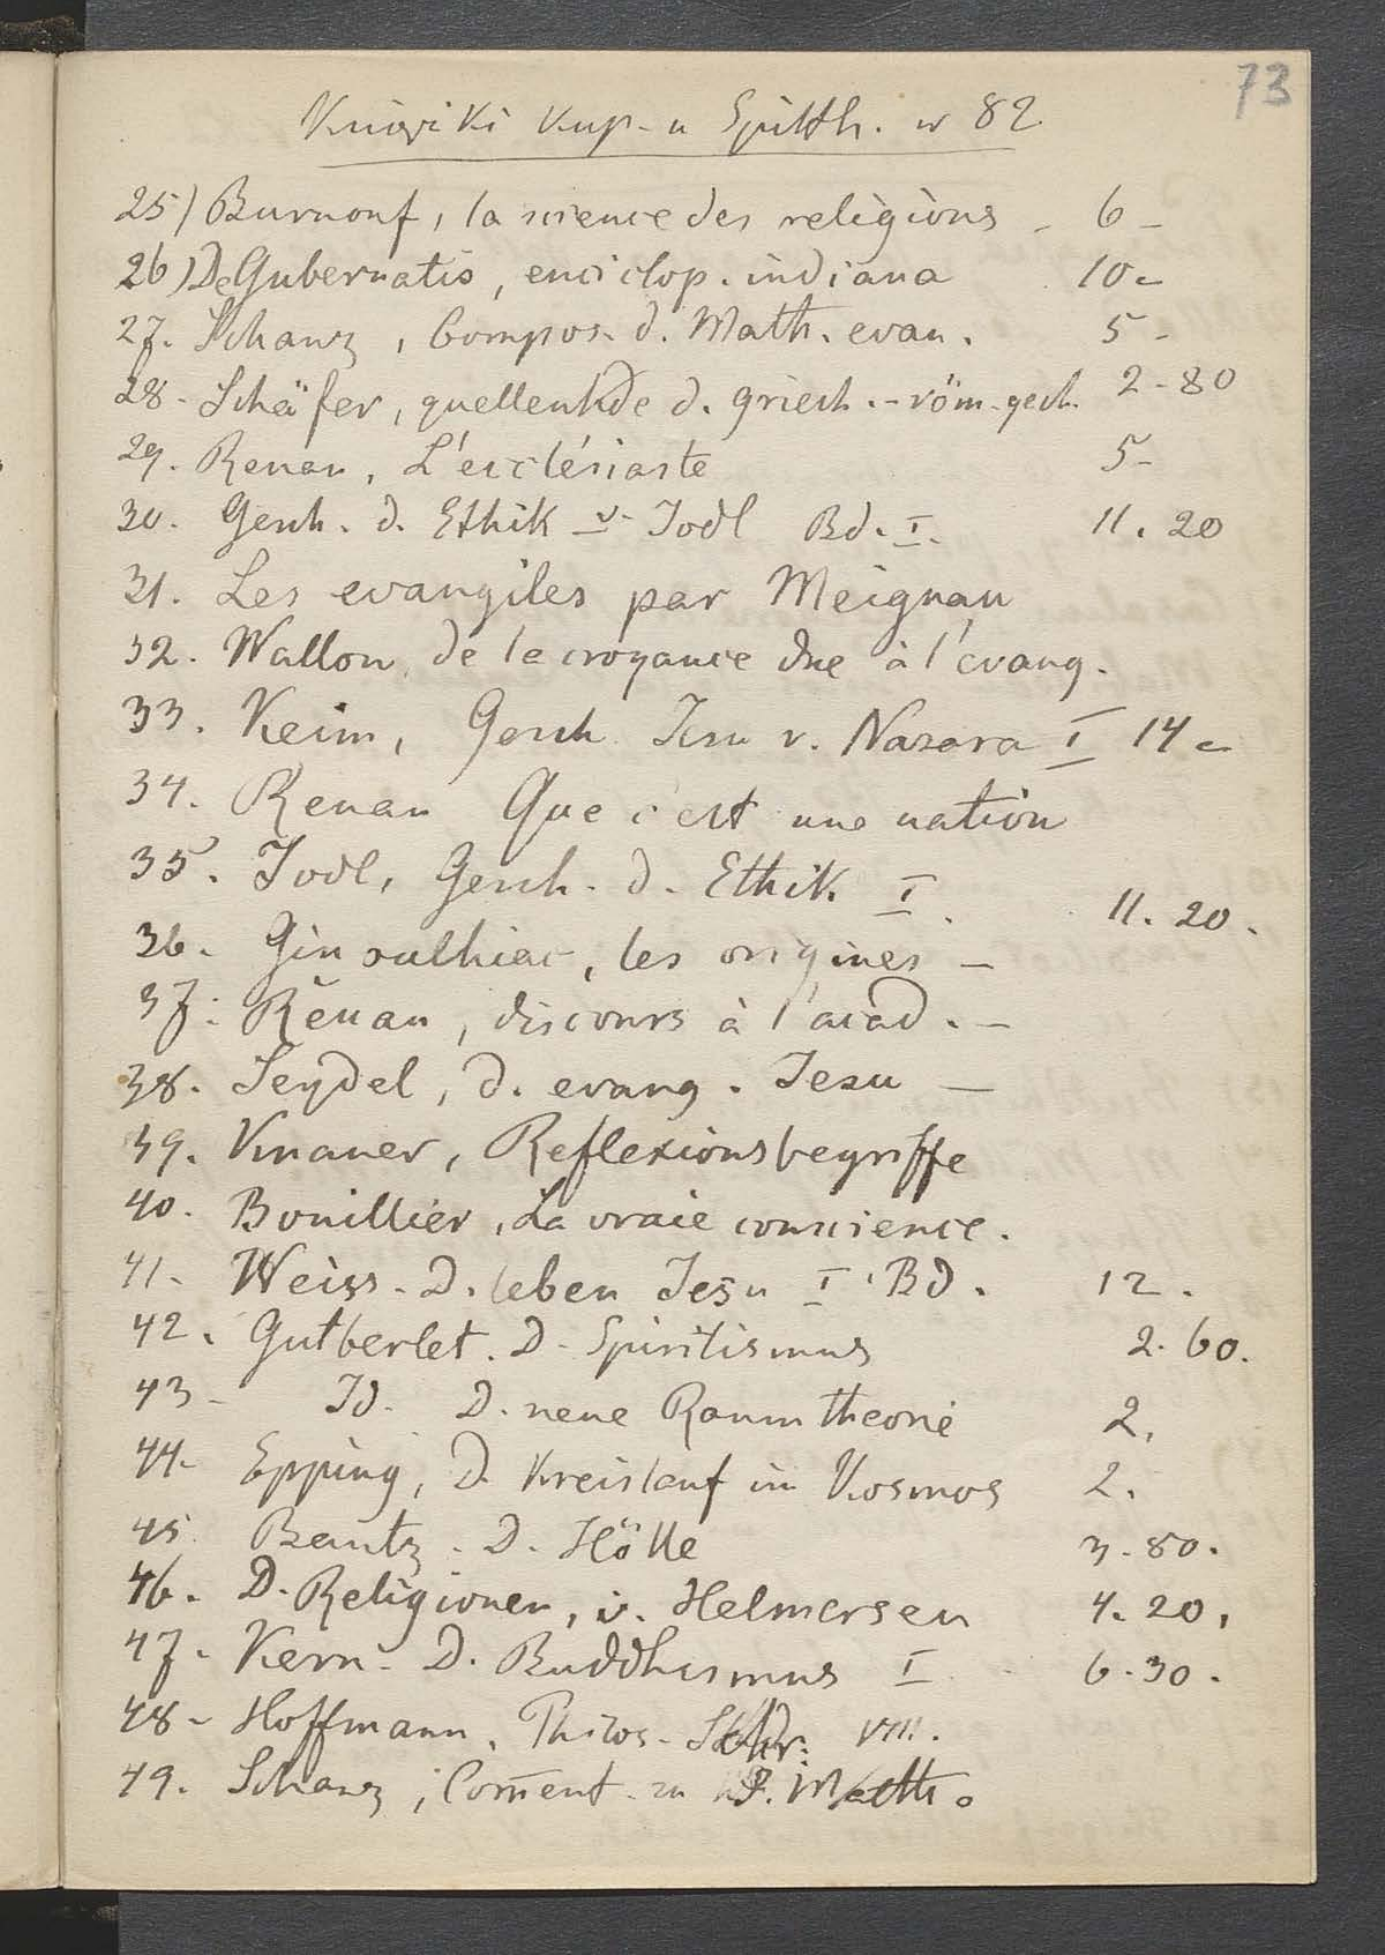 73
Książki kup. u Spitth. w 82
25) Burnouf, la science des religions - 6 -
26) De Gubernatis, enciclop. indiana 10 -
27. Schanz, Compos. d. Math. evan. 5 -
28 - Schäfer, quellenkde d. griech. - röm. gesch. 2 - 80
29. Renan, L'ecclésiaste 5 -
30. Gesch. d. Ethik v. Jodl Bd. I. 11. 20
31. Les evangiles par Meignan
32. Wallon, de la croyance due à l'evang.
33. Keim, Gesch Jesu v. Nazara I 14 -
34. Renan Que c'est une nation
35. Jodl, Gesch. d. Ethik I. 11. 20.
36. Ginoulhiac, les origines -
37. Renan, discours à l'acad. -
38. Seydel, d. evang. Jesu -
39. Knauer, Reflexionsbegriffe
40. Bouillier, La vraie conscience.
41 - Weiss. D. leben Jesu I. Bd. 12.
42. Gutberlet. D. Spiritismus 2. 60.
43 - Id. D. neue Raumtheorie 2.
44 - Epping, D. Kreislauf im Kosmos 2.
45 Bautz. D. Hölle 3. 80.
46. D. Religionen, v. Helmersen 4. 20.
47. Kern - D. Buddhismus I 6. 30.
48 - Hoffmann, Philos. Schr. VIII.
49. Schanz, Com̄ent. zu Matth.